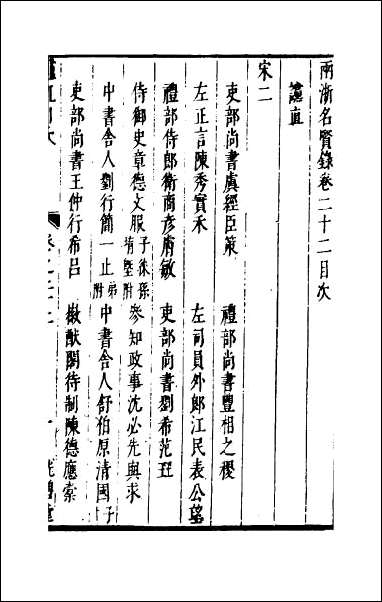 兩浙名賢錄卷二十二目次
讜直
宋二
吏部尚書虞經臣策 禮部尚書豐相之稷
左正言陳秀實禾 左司員外郎江民表公望
禮部侍郎衛商彥膚敏 吏部尚書劉希范珏
侍御史章德文服 參知政事沈必先與求
中書舍人劉行簡一止弟附 中書舍人舒伯原清國子
吏部尚書王仲行希呂 徽猷閣待制陳德應橐